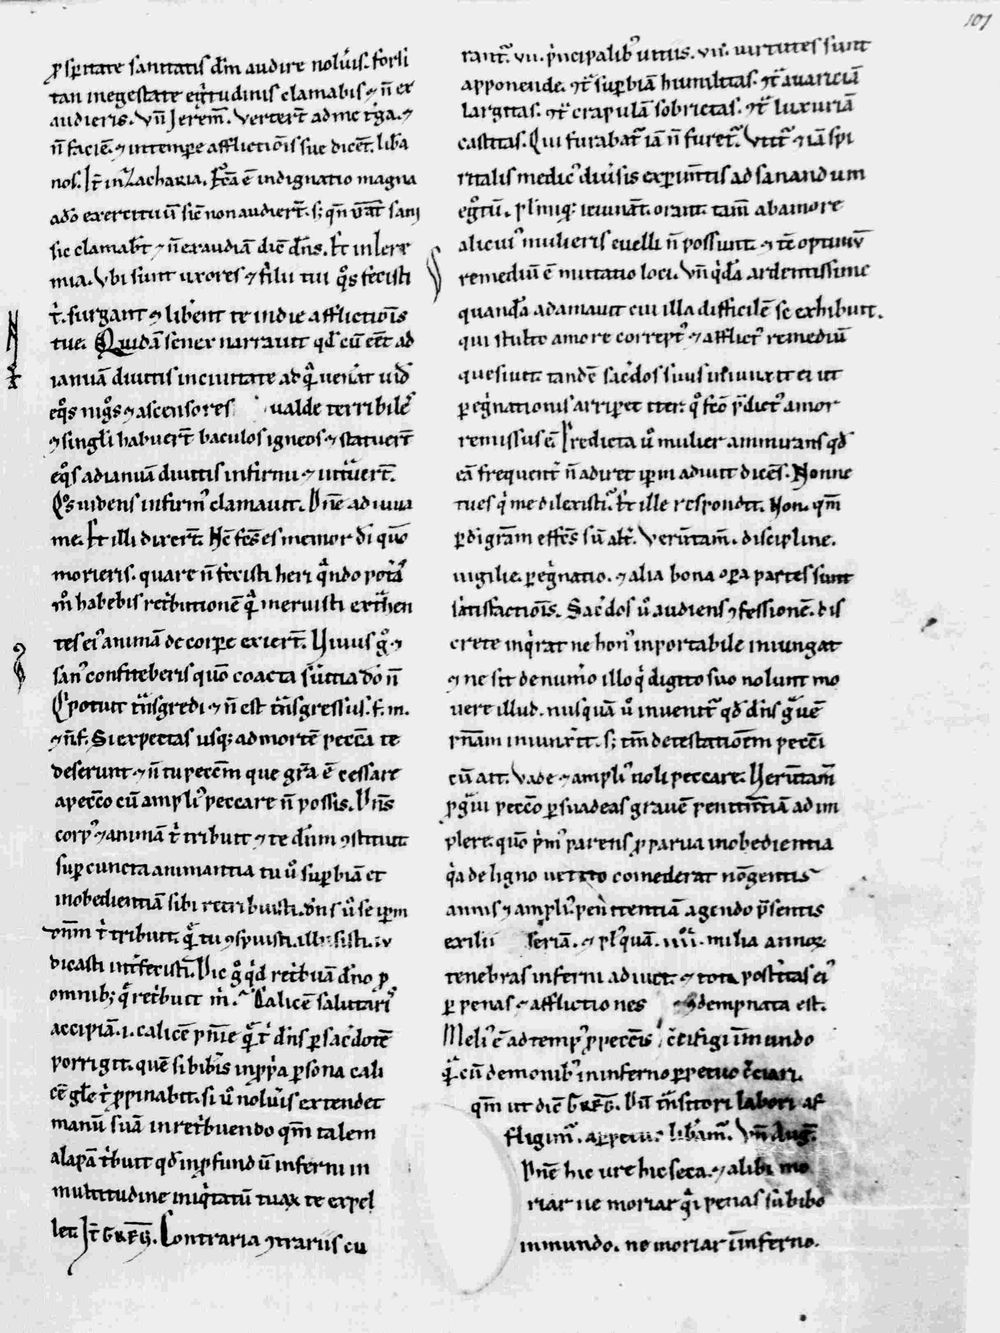 107
ꝓsꝑitate sanitatis dn̄m audire nolūis. forsi
tan in egestate egͥtudinis clamabis ⁊ n̄ ex
audieris. Vn̄ Jerem̄. Verter̄t ad me tͥga. ⁊
n̄ faciē. ⁊ in tempore afflictiōis sue dicēt. libͣa
nos. Iͭ in Zacharia. Fcā ē indignatio magna
a dō exercituū sic̄ non audier̄t. sꝫ
sic clamabt̄ ⁊ n̄ exaudiā dic̄ dn̄s. Iͭ in Iere
mia. Vbi sunt uxores ⁊ filii tui qͦs fecisti
tͥ. surgant ⁊ liberent te in die afflictiōis
tue. Quidā senex narrauit qd̄ cū eēt ad
ianuā diuitis in ciuitate ad qͣ uenat̄ uid̄
eqͦs nigͦs ⁊ ascensores ualde terribiles
⁊ singl̄i habuer̄t baculos igneos ⁊ statuer̄t
eqͦs ad ianuā diuitis infirmi ⁊ intͣuer̄t.
Qͦs uidens infirmꝰ clamauit. Dn̄e adiuua
me. Et illi dixer̄t. Nc̄ fc̄s es memor dī quō
morieris. quare n̄ fecisti heri qͣndo potͣas
m̊ habebis ret̄butionē qͣ meruisti extͣhen
tes eiꝰ animā de corꝑe exier̄t. Uiuus gͦ ⁊
sanꝰ confiteberis quō coacta suitia dō n̄
Qͥ potuit tn̄sgredi ⁊ n̄ est tn̄sgressus. s. m.
⁊ n̄ f. Si expectas usqꝫ ad mortē peccā te
deserunt ⁊ n̄ tu pecc̄m que grā ē cessare
a pecc̄o cū ampliꝰ peccare n̄ possis. Dn̄s
corpꝰ ⁊ animā tͥ tribuit ⁊ te dn̄m ꝯstituit
suꝑ cuncta animantia tu u̇ suꝑbiā et
inobedientiā sibi retribuisti. dn̄s u̇ se ipm̄
tͥ tribuit.
dicasti int̄fecisti. Dic gͦ qͥd ret̄buā dn̄o ꝓ
omnibꝫ q̄ ret̄buit m̄. Calicē salutarī
accipiā. i. calicē pn̄ie qͣ tͥ dn̄s ꝑ sacͤdotē
porrigit. quē si bibis in ꝓpͥa ꝑsona cali
cē gl̄e tͥ ꝓpinabit. si u̇ nolūis extendet
manū suā in ret̄buendo qm̄ talem
alapā t̄buit qd̄ in ꝓfundū inferni in
multitudine iniqͥtatū tuaꝝ te expel
let. Iͭ Greg̅. Contraria ꝯtrariis cu
rant̄. vii. pͥncipalibꝰ uitiis. vii. uirtutes sunt
apponende. ꝯͭ suꝑbiā humilitas. ꝯͭ auariciā
largitas. ꝯͭ crapulā sobrietas. ꝯͭ luxuriā
castitas. Qui furabat̄ iā n̄ furet̄. Vtit̄ ⁊ iā spi
ritalis medicꝰ diūsis exꝑim̄tis ad sanandum
egͦtū. Pl̄imiqꝫ ieiunāt. orant. tam̄ ab amore
alicuiꝰ mulieris euelli n̄ possunt. ⁊ tc̄ optimū
remediū ē mutatio loci. Vn̄ qͥdā ardentissime
quandā adamauit cui illa difficile se exhibuit.
qui stulto amore correptꝰ ⁊ afflictꝰ remediū
quesiuit. tandē sacͤdos suus iniunxit ei ut
ꝑegͥnationis arriꝑet iter. qͦ fc̄o pͥdictꝰ amor
remissus ē. Predicta u̇ mulier ammirans qd̄
eā frequent̄ n̄ adiret ipm̄ adiuit dicēs. Nonne
tu es qͥ me dilexisti. Et ille respondit. Non. qm̄
ꝑ dī grām effc̄s sū alt̄. Verūtam̄. discipline.
uigilie. ꝑegͥnatio. ⁊ alia bona oꝑa partes sunt
satisfactiōis. Sacͤdos u̇ audiens ꝯfessionē. dis
crete inqͥrat ne honꝰ inportabile iniungat
⁊ ne sit de numͦo illoꝝ qͥ digito suo nolunt mo
uere illud. nusquā u̇ inuenit̄ qd̄ dn̄s gͣuē
pn̄iam iniunx̄it. sꝫ tm̄ detestationem pecc̄i
cū ait. Vade ⁊ ampliꝰ noli peccare. Uerūtam̄
ꝓ gͣui pecc̄o ꝑsuadeas grauē penitentiā ad im
plere. quō pͥmꝰ parens ꝓ parua inobedientia
qͥa de ligno uetito comederat nōgentis
annis ⁊ ampliꝰ penitentiā agendo pͥsentis
exilii seriā. ⁊ plꝰquā. iiii. milia annoꝝ
tenebras inferni adiuit. ⁊ tota postͥitas eiꝰ
ꝑ penas ⁊ afflictiones ꝯdempnata est.
Meliꝰ ē ad tempꝰ ꝓ pecc̄is cͬcifigi ī mundo
qͣ cū demonibꝰ in inferno ꝑpetuo cͬciari.
qm̄ ut dic̄ Greg̅. Dū tn̄sitori labori af
fligimꝰ. a ꝑpetuo libͣam̄. Vn̄ Aug̅.
Dn̄e hic ure hic seca. ⁊ alibi mo
riar ne moriar qͥ penas subibo
in mundo. ne moriar ī inferno.